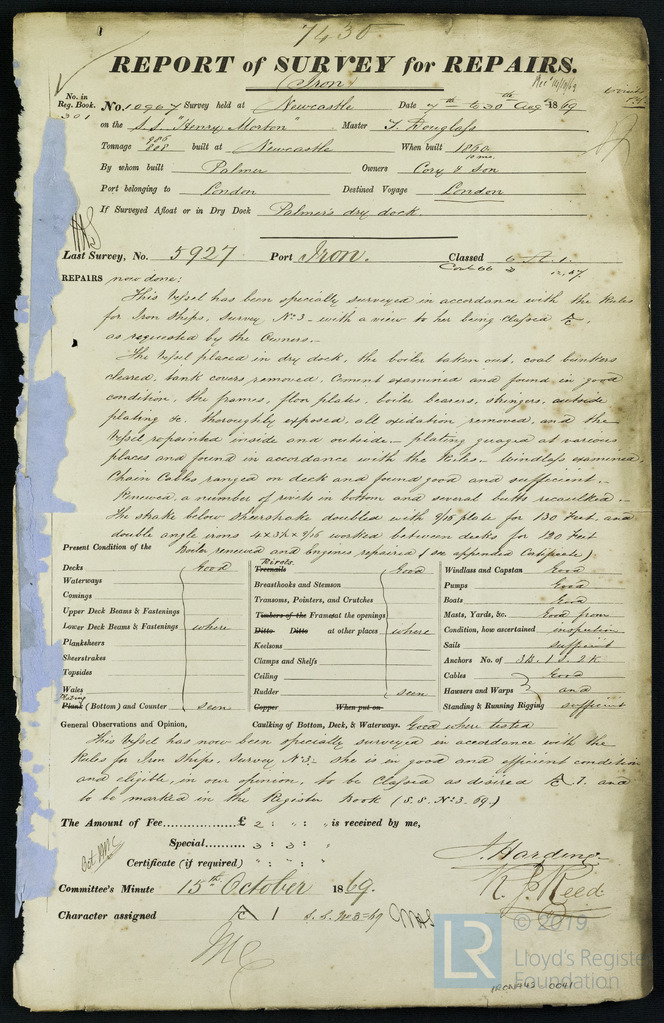 7430
REPORT of SURVEY for REPAIRS.
(Iron)
Rec'd 11/10/69
No. in
Reg. Book.
301
No. 10967 Survey held at Newcastle Date 7th to 30th Aug 1869
on the S.S. "Henry Morton" Master T. Douglass
Tonnage 906 808 built at Newcastle When built 1860
10 mo.
By whom built Palmer Owners Cory & Son
Port belonging to London Destined Voyage London
If Surveyed Afloat or in Dry Dock Palmer's dry dock.
Last Survey, No. 5927 Port Iron. Classed 6 A. 1.
12, 67
REPAIRS now done:
This Vessel has been specially surveyed in accordance with the Rules
for Iron Ships, Survey No 3 - with a view to her being Classed A,
as requested by the Owners.
The Vessel placed in dry dock, the boiler taken out, coal bunkers
cleared, tank covers removed, Cement examined and found in good
condition, the frames, floor plates, boiler bearers, stringers, outside
plating &c. thoroughly exposed, all oxidation removed, and the
Vessel repainted inside and outside - plating guaged at various
places and found in accordance with the Rules - Windlass examined,
Chain Cables ranged on deck and found good and sufficient.
Renewed a number of rivets in bottom and several butts recaulked.
The strake below Sheerstrake doubled with 9/16 plate for 130 Feet, and
double angle irons 4 x 3½ x 9/16 worked between decks for 120 Feet
Boiler renewed and Engines repaired (see appended Certificate)
Present Condition of the
Decks Good
Waterways
Comings
Upper Deck Beams & Fastenings
Lower Deck Beams & Fastenings where
Planksheers
Sheerstrakes
Topsides
Wales
Plating
Plank (Bottom) and Counter seen
Rivets
Treenails Good
Breasthooks and Stemson
Transoms, Pointers, and Crutches
Timbers of the Frames at the openings
Ditto Ditto at other places where
Keelsons
Clamps and Shelfs
Ceiling
Rudder seen
Copper When put on
Windlass and Capstan Good
Pumps Good
Boats Good
Masts, Yards, &c. Good from
Condition, how ascertained inspection
Sails sufficient
Anchors No. of 3B. 1S. 2K
Cables Good
Hawsers and Warps and
Standing & Running Rigging sufficient
General Observations and Opinion, Caulking of Bottom, Deck, & Waterways. Good where tested
This Vessel has now been specially surveyed in accordance with the
Rules for Iron Ships, Survey No 3 - she is in good and efficient condition
and eligible, in our opinion, to be Classed as desired A 1. and
to be marked in the Register Book (S. S. No 3 - 69.)
The Amount of Fee £ 2 : " : " is received by me,
Special 3 : 3 : "
Certificate (if required) " : " : "
J. Harding
R. J. Reed
Committee's Minute 15th October 1869.
Character assigned A 1 S. S. No 3 - 69
LR
© 2019
Lloyd's Register
Foundation
IRON 743 0041